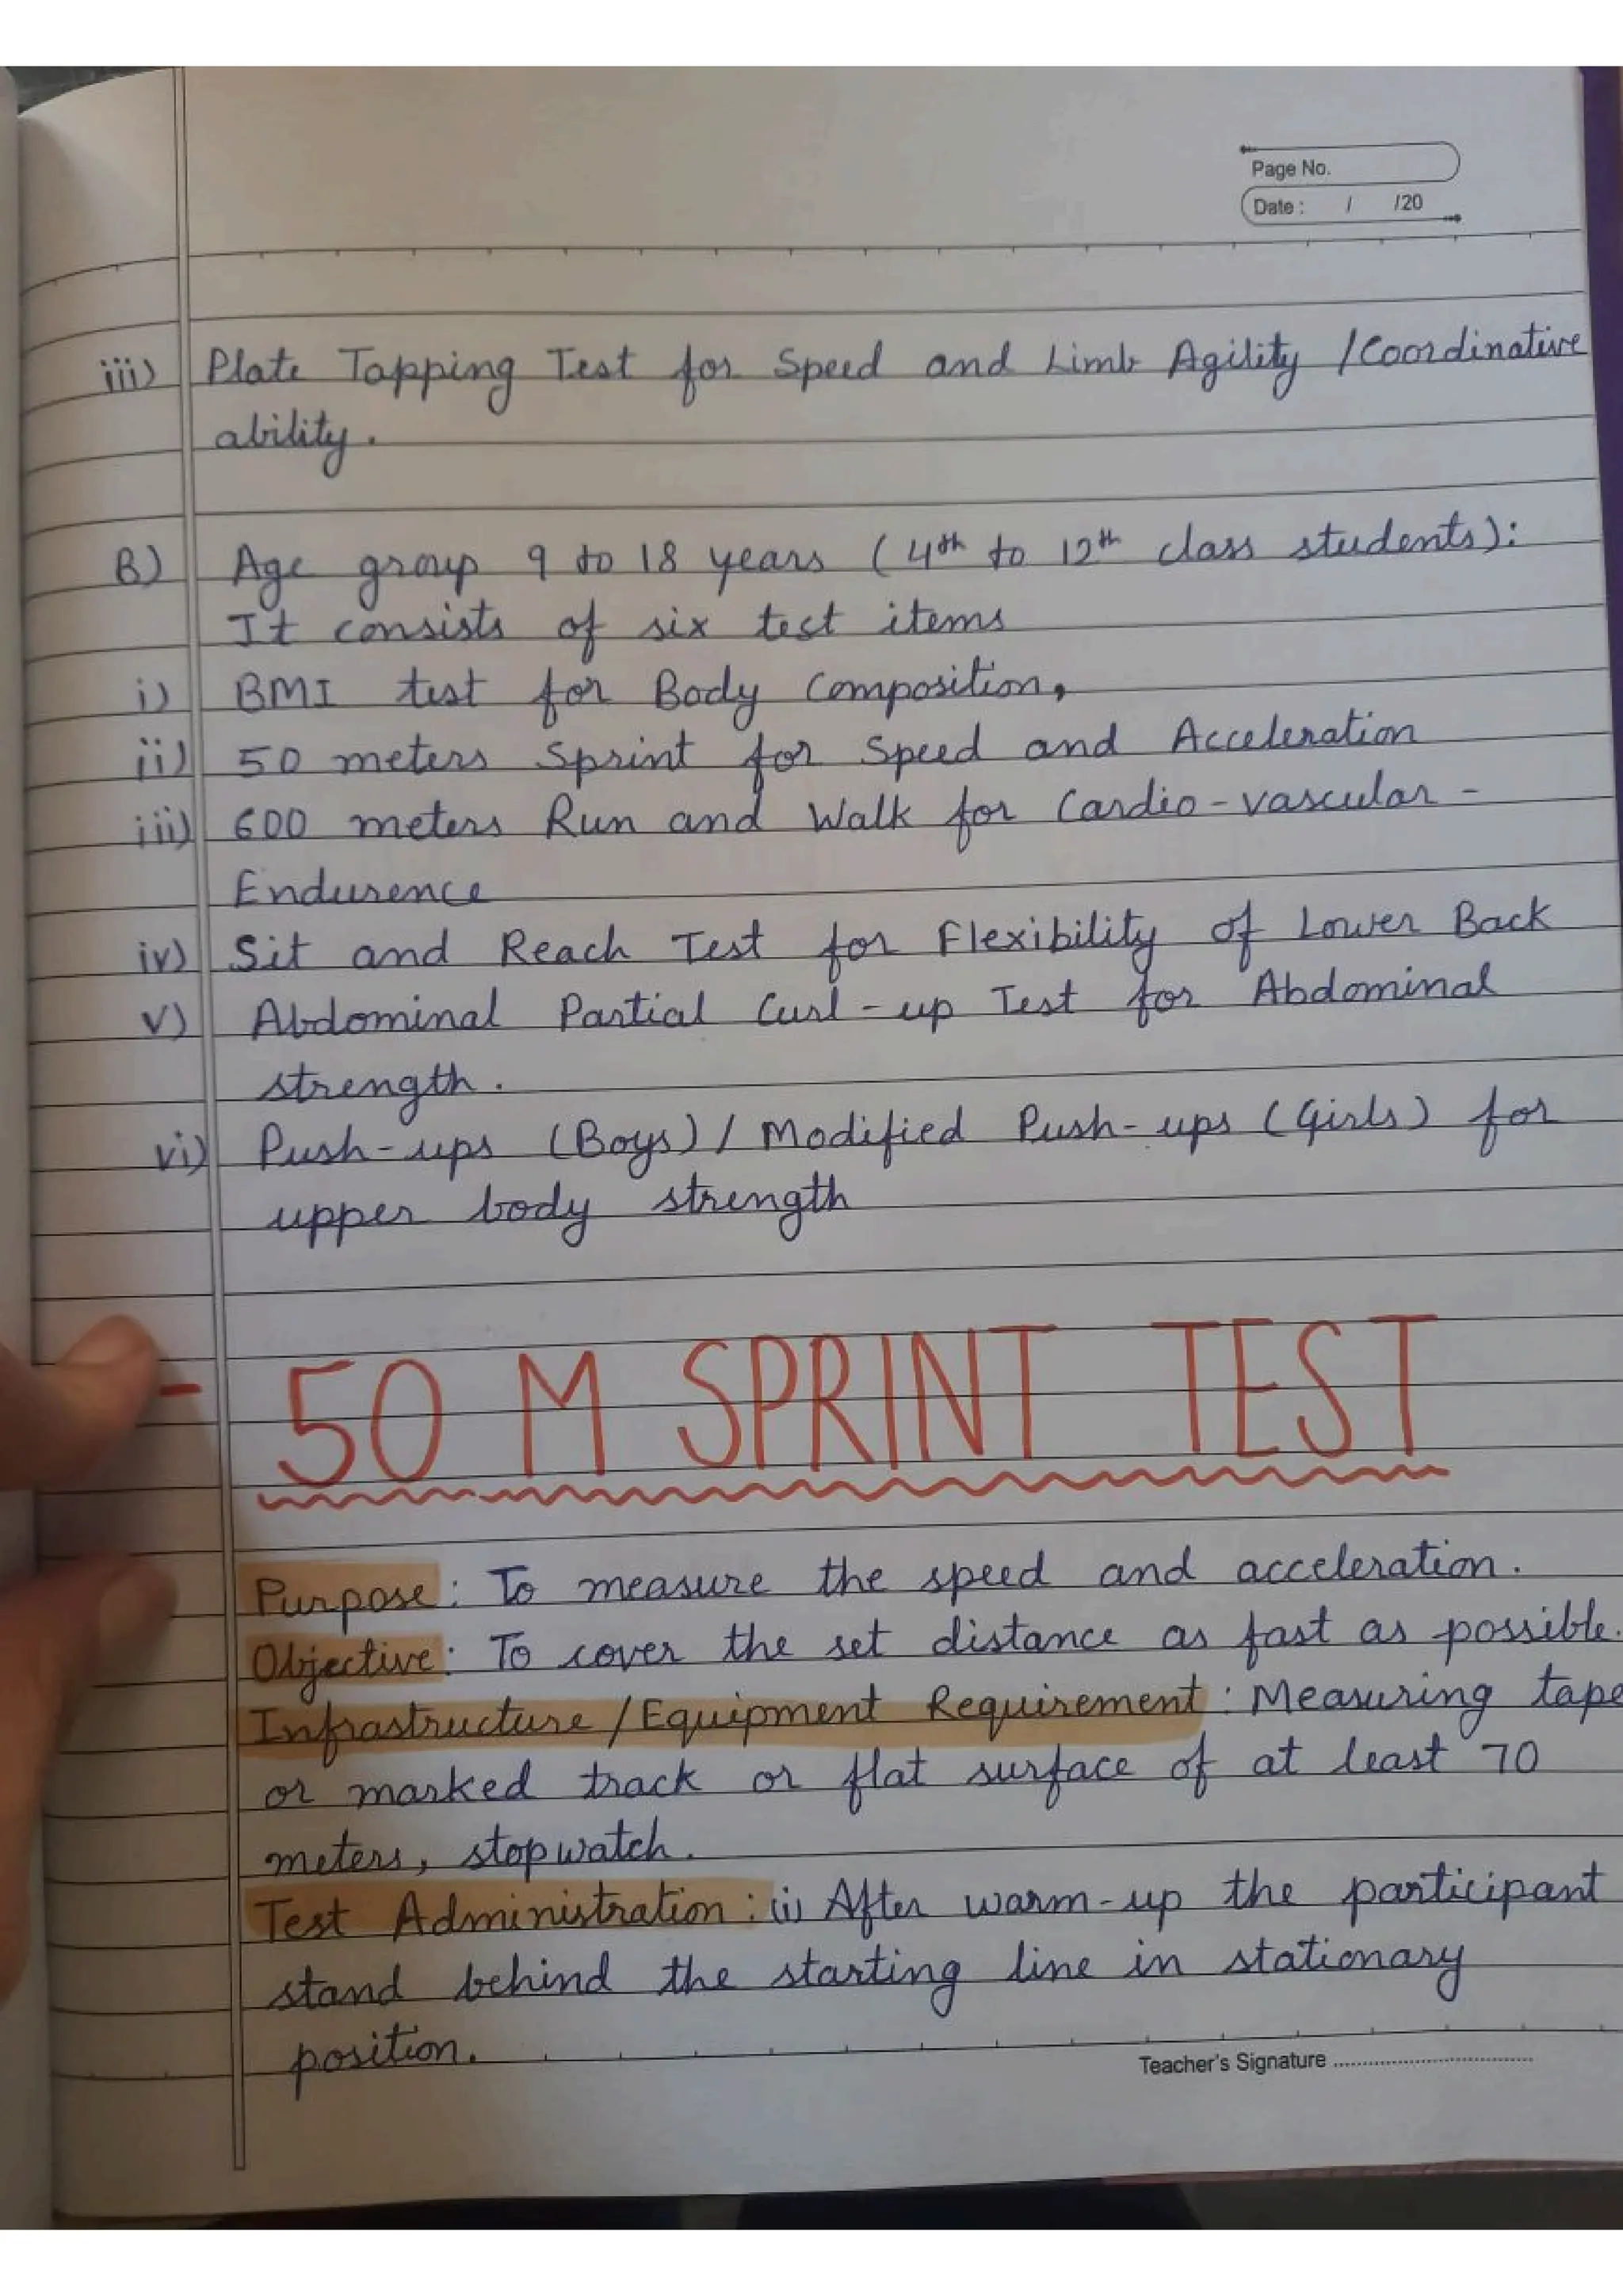 Page No.
Date : / /20
iii) Plate Tapping Test for Speed and Limb Agility / Coordinative
ability.
B) Age group 9 to 18 years (4th to 12th class students):
It consists of six test items
i) BMI test for Body Composition,
ii) 50 meters Sprint for Speed and Acceleration
iii) 600 meters Run and Walk for Cardio-vascular-
Endurence
iv) Sit and Reach Test for Flexibility of Lower Back
v) Abdominal Partial Curl-up Test for Abdominal
strength.
vi) Push-ups (Boys) / Modified Push-ups (Girls) for
upper body strength
- 50 M SPRINT TEST
Purpose: To measure the speed and acceleration.
Objective: To cover the set distance as fast as possible.
Infrastructure / Equipment Requirement: Measuring tape
or marked track or flat surface of at least 70
meters, stopwatch.
Test Administration: (i) After warm-up the participant
stand behind the starting line in stationary
position.
Teacher's Signature